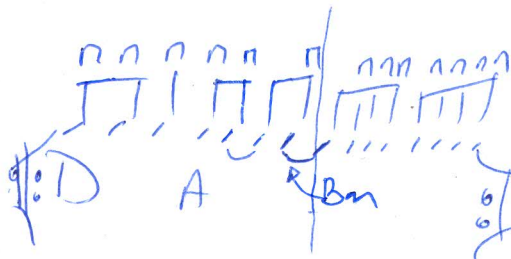 D A Bm